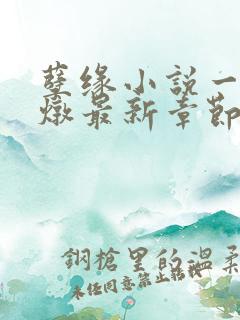 孽缘小说一
燉最新章節
鋼槍里的溫柔
未任同意禁止转载